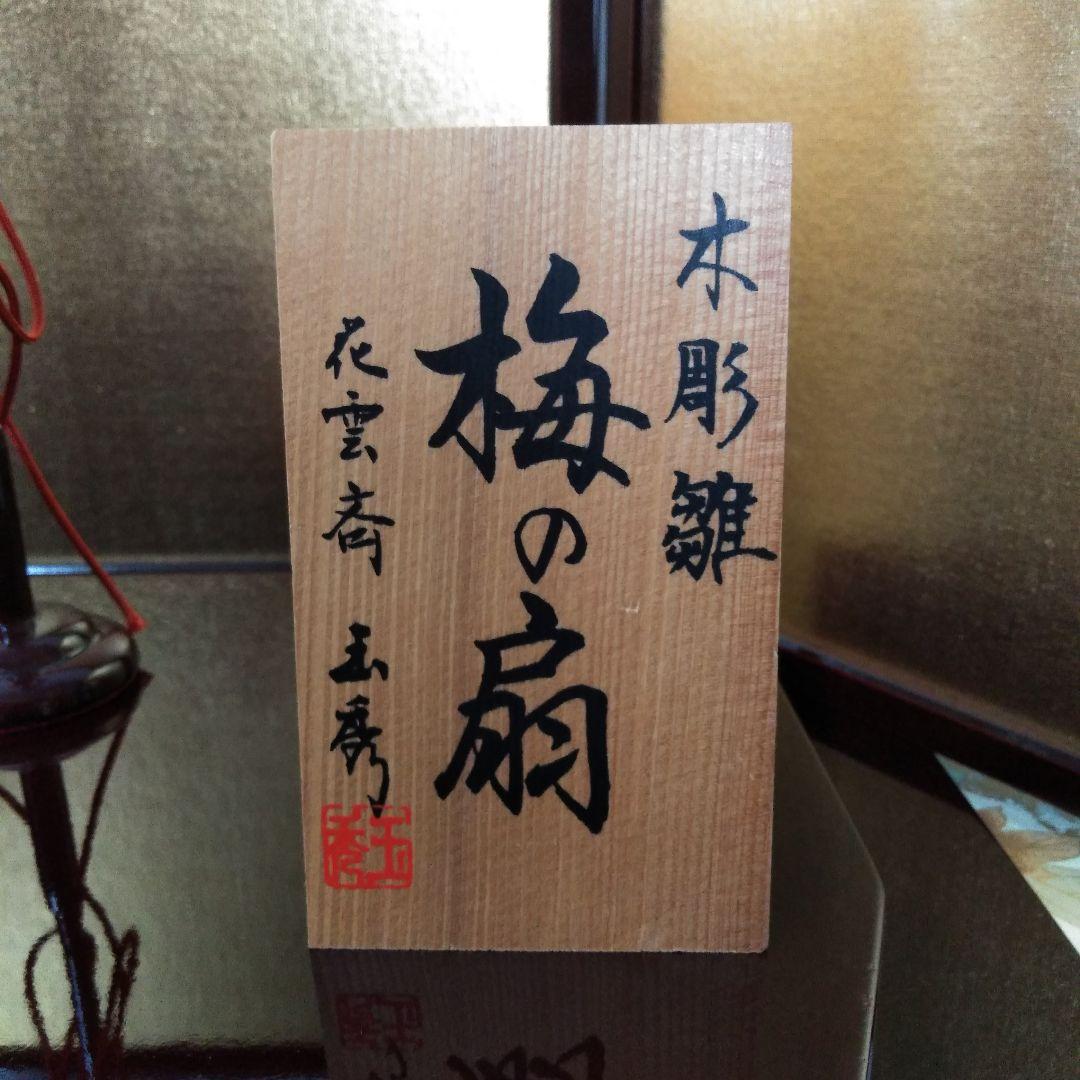 木彫雛
梅の扇
花雲斎 玉秀
玉秀